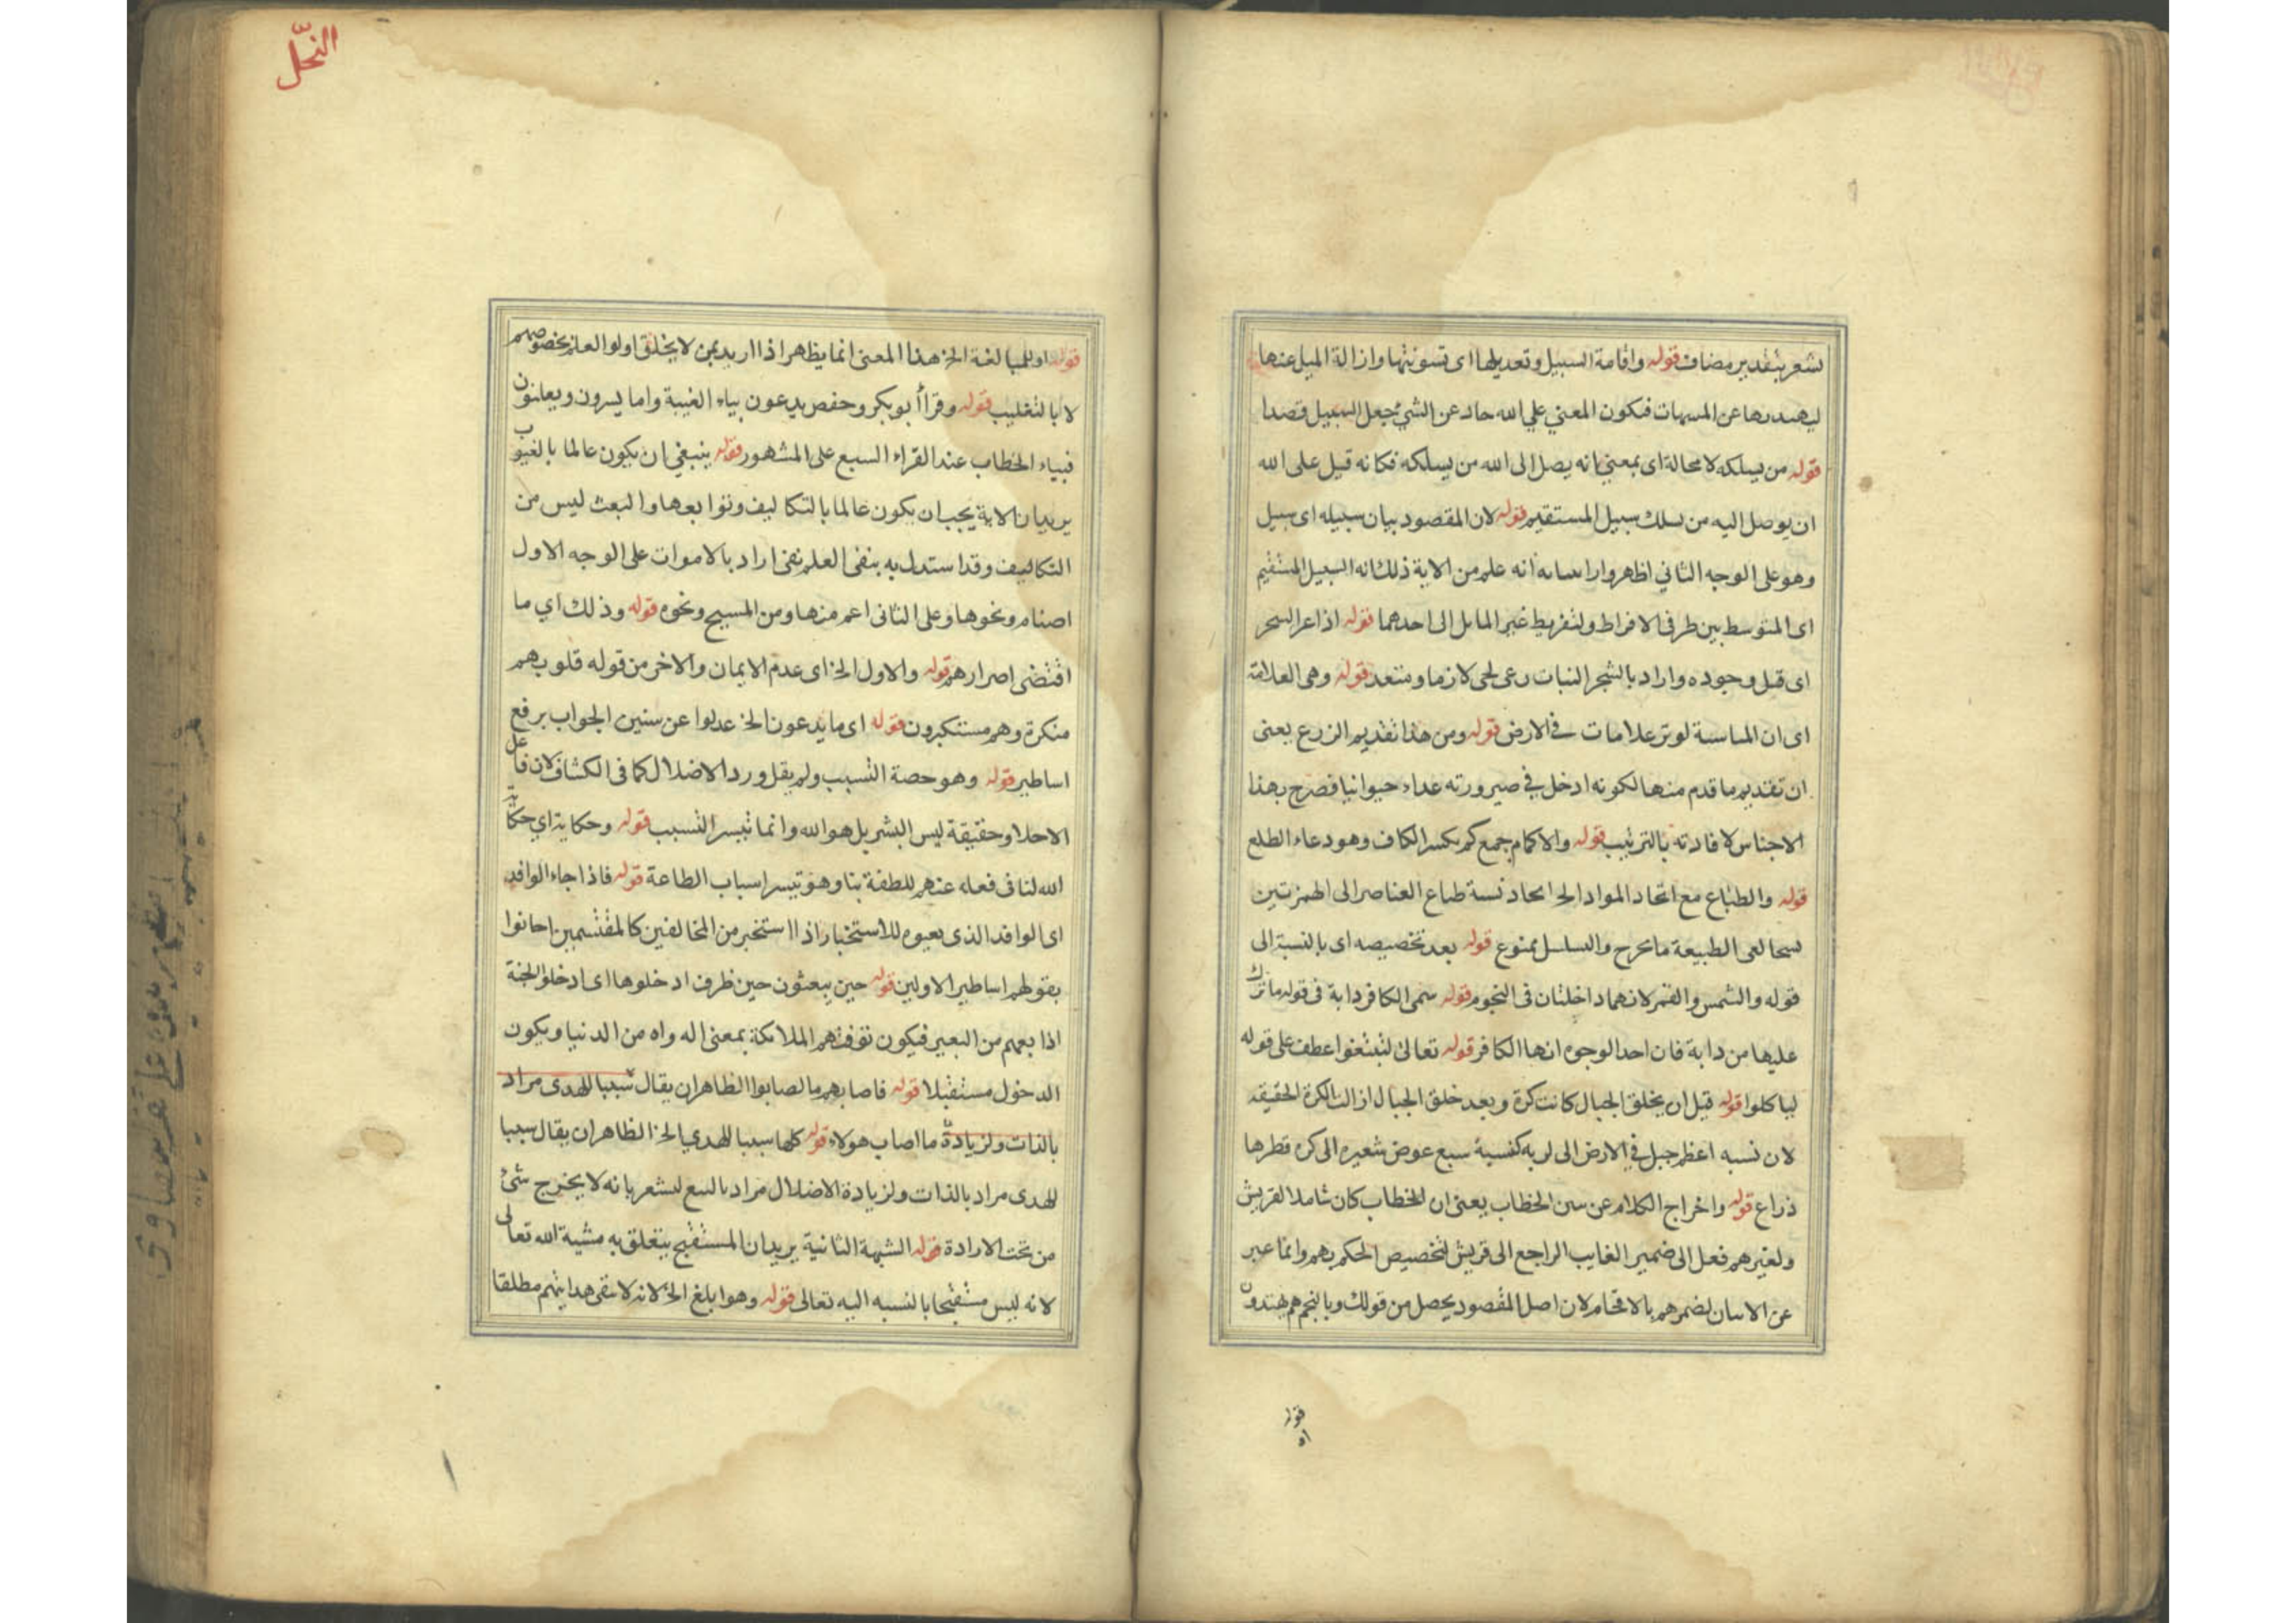 لشعر بتقدير مضاف قوله واقامة السبيل وتعديلها اى تسويتها وازالة الميل عنها
فيكون المعنى على الله حاد عن الشئ جعل السبيل قصدا
قوله من يسلكه لا محالة اى بمعنى انه يصل الى الله من يسلكه فكانه قيل على الله
ان يوصل اليه من سلك سبيل المستقيم قوله لان المقصود بيان سبيله اى سبيل
وهو على الوجه الثاني اظهر انه علم من الاية ذلك انه السبيل المستقيم
اى المتوسط بين طرفى الافراط ولتفريط غير المايل الى احدهما قوله
اى قبل وجوده واراد بالشجر النبات رعى لحى لازما ومتعد قوله وهى العلامة
اى ان لوتر علامات فى الارض قوله ومن هذا تقديم الزرع يعنى
ان تقديم ما قدم منها لكونه ادخل في صيرورته عداء حيوانيا فصرح بهذا
الاجناس لافادته بالترتيب قوله والاكمام جمع كم بكسر الكاف وهو دعاء الطلع
قوله والطباع مع اتحاد المواد الخ اتحاد نسبة طباع العناصر الى
الطبيعة ممنوع قوله بعد تخصيصه اى بالنسبة الى
قوله والشمس والقمر لانهما داخلتان فى النجوم قوله سمى الكافر دابة فى قوله ما ترك
عليها من دابة فان احد الوجوه انها الكافر قوله تعالى لتبتغوا عطف على قوله
لياكلوا قوله قبل ان يخلق الجبال كانت كرة وبعد خلق الجبال الكرة الحقيقه
لان نسبه اعظم جبل في الارض الى سبع عرض شعيره الى كره قطرها
ذراع قوله واخراج الكلام عن سنن الخطاب يعنى ان الخطاب كان شاملا لقريش
ولغيرهم فعل الى ضمير الغايب الراجع الى قريش لتخصيص الحكم بهم وانما عبر
عن بالاقحام لان اصل المقصود يحصل من قولك وبالنجم هم يهتدون
قوله
النحل
قوله او للمبالغة الخ هذا المعنى انما يظهر اذا اريد بمن لا يخلق اولوا العلم بخصوصهم
لا بالتغليب قوله وقرأ أبو بكر وحفص يدعون بياء الغيبة واما يسرون ويعلنون
فبياء الخطاب عند القراء السبع على المشهور قوله ينبغي ان يكون عالما بالغيوب
يريد ان الاية يجب ان يكون عالما بالتكاليف وتوابعها والبعث ليس من
التكاليف وقد استدل به بنفى العلم نفى اراد بالاموات على الوجه الاول
اصنام ونحوها وعلى الثانى اعم منها ومن المسيح ونحوه قوله وذلك اي ما
اقتضى اصرارهم قوله والاول الخ اى عدم الايمان والاخر من قوله قلوبهم
منكرة وهم مستكبرون قوله اى ما يدعون الخ عدلوا عن سنين الجواب برفع
اساطير قوله وهو حصة التسبب ولم يقل وردا لاضلال كما فى الكشاف لان فاعل
حقيقة ليس البشر بل هو الله وانما تيسر التسبب قوله وحكاية اي حكاية
الله لنا فى فعله عنهم للطفة بنا وهو تيسر اسباب الطاعة قوله فاذا جاء الوافد
اى الوافد الذى للاستخبار اذا استخبر من المخالفين كالمقتسمين اجانوا
بقولهم اساطير الاولين قوله حين يبعثون حين ظرف ادخلوها اى ادخلوا الجنة
اذا من فيكون توفتهم الملائكة بمعنى من الدنيا ويكون
الدخول مستقبلا قوله فاصابهم ما لصابوا الظاهر ان يقال سببا للهدى مراد
بالذات ولزيادة ما اصاب هولاء قوله كلها سببا للهدي الخ الظاهر ان يقال سببا
للهدى مراد بالذات ولزيادة الاضلال مراد لشعر بانه لا يخرج شئ
من تحت الارادة قوله الشبهة الثانية يريد ان المستقبح يتعلق به مشية الله تعالى
لانه ليس مستقبحا بالنسبه اليه تعالى قوله وهو ابلغ الخ لانه هدايتهم مطلقا